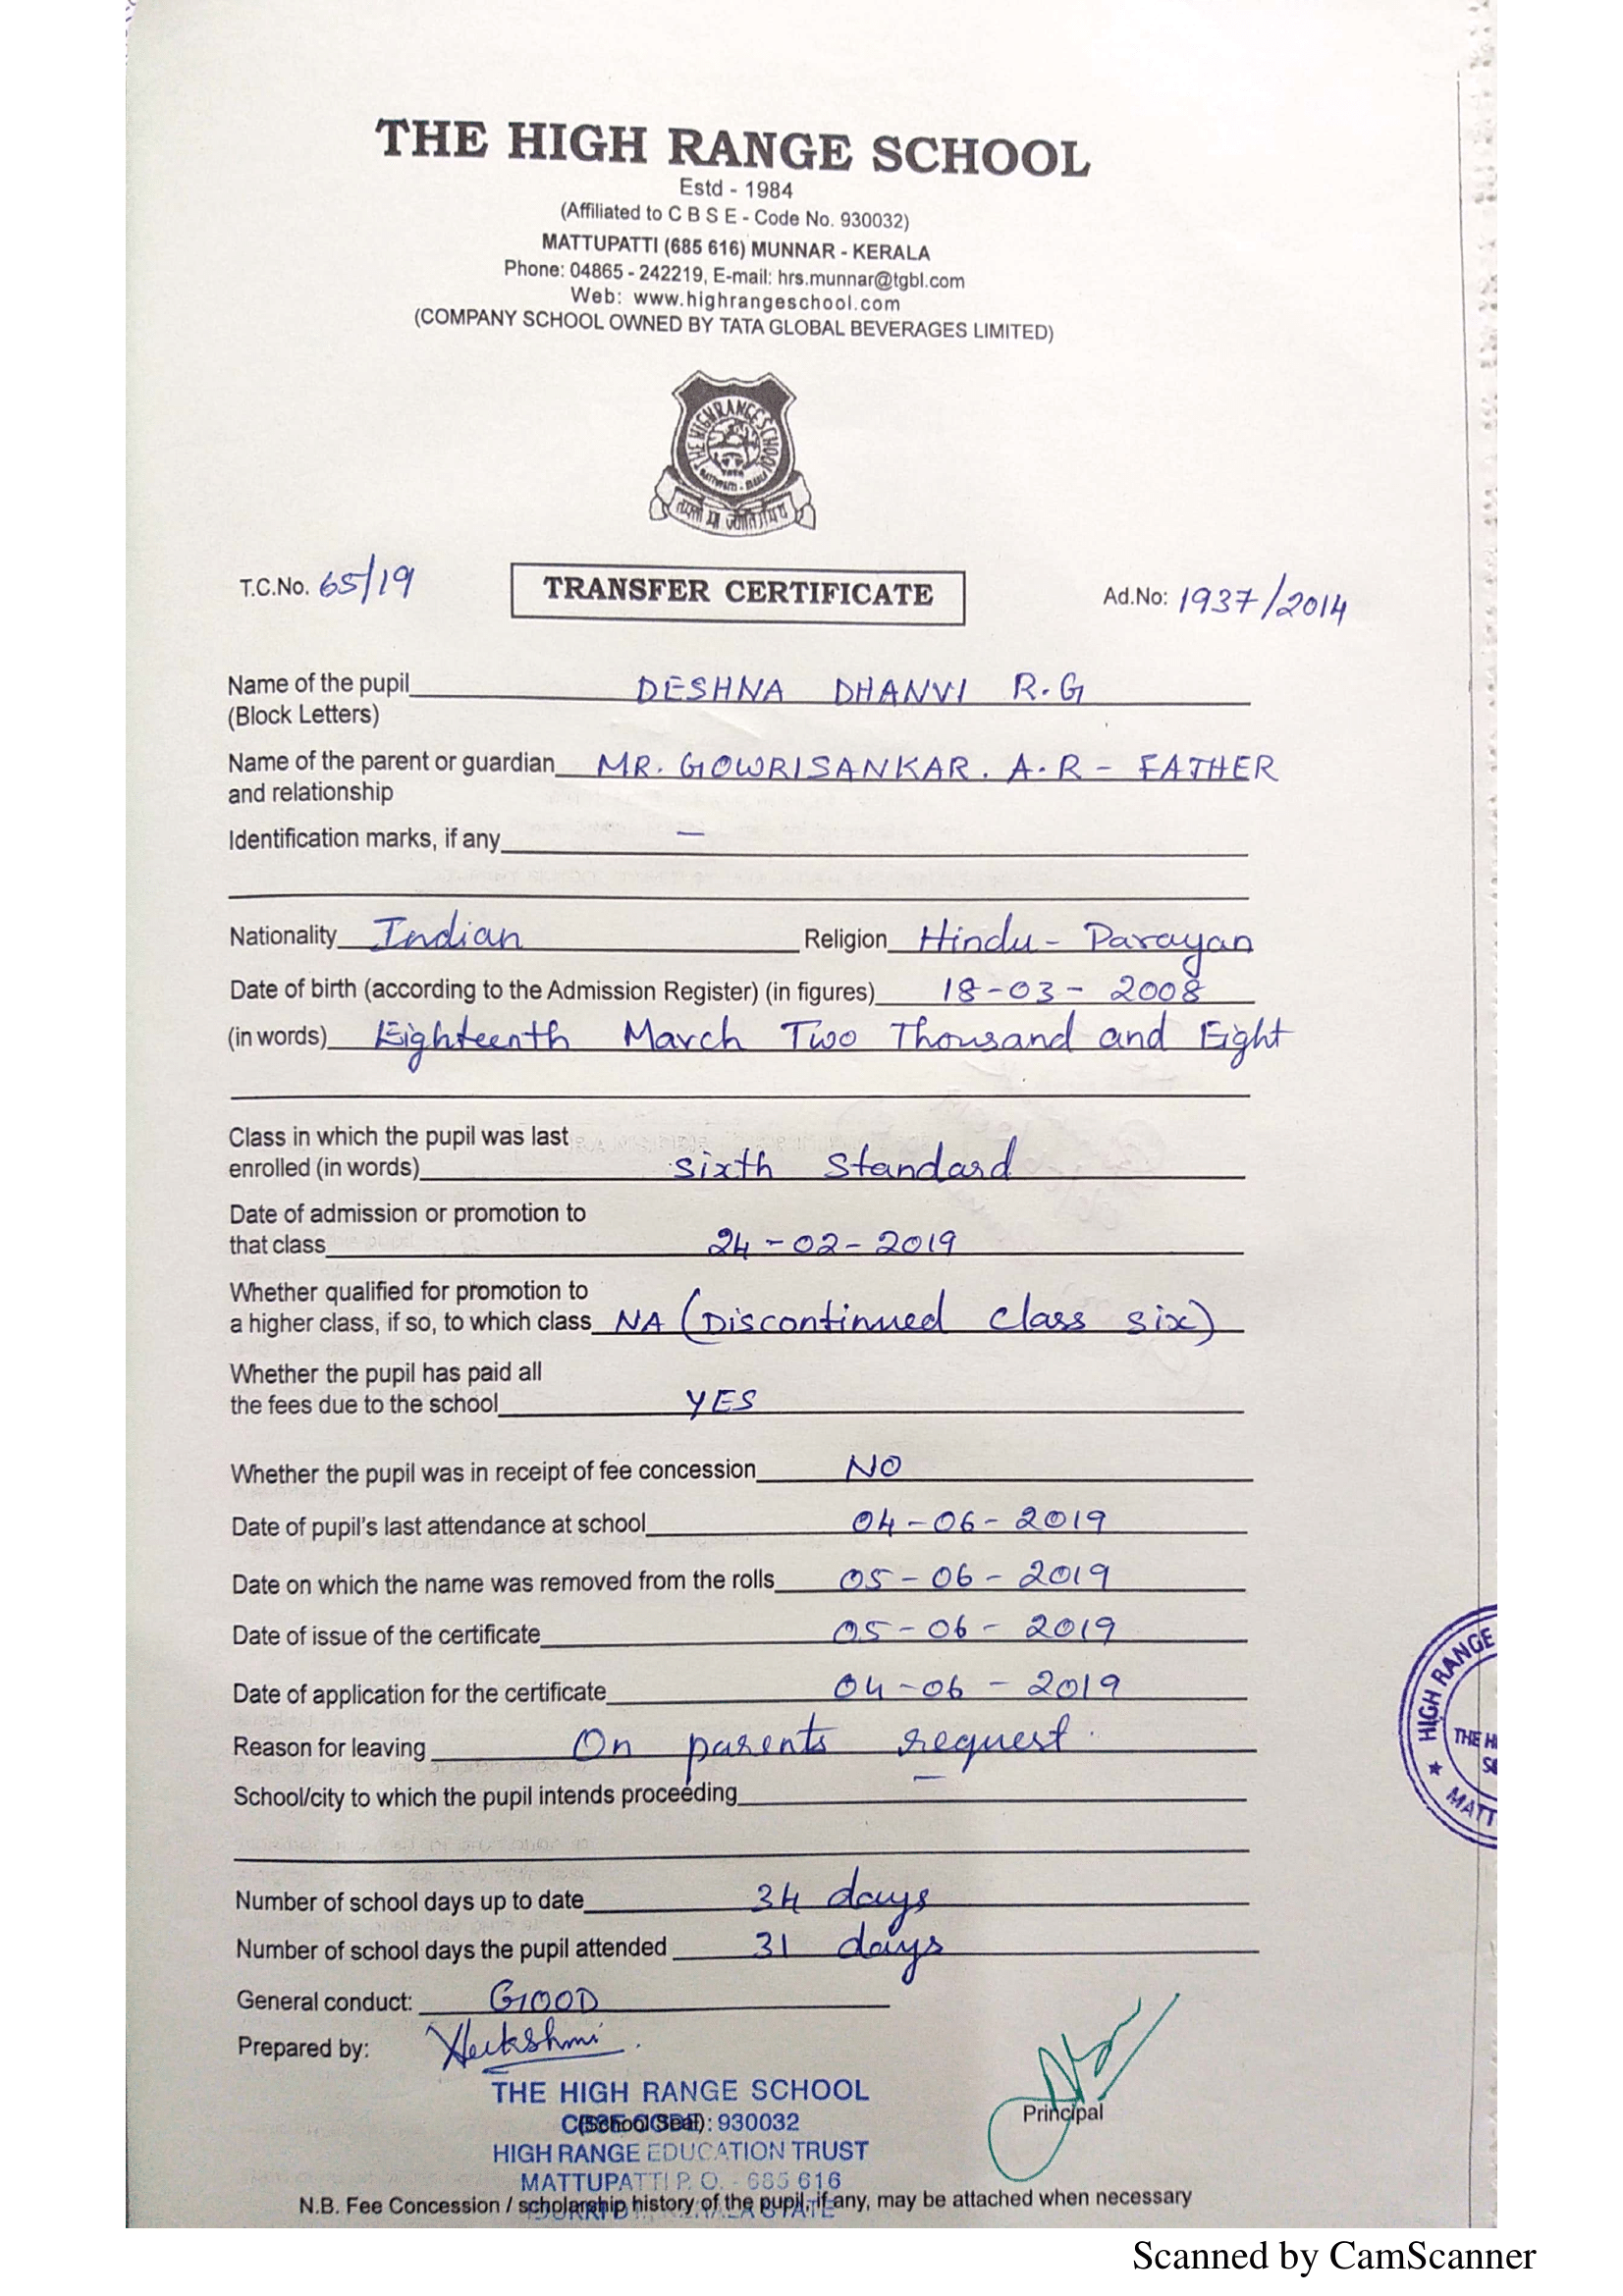 THE HIGH RANGE SCHOOL
Estd - 1984
(Affiliated to C B S E - Code No. 930032)
MATTUPATTI (685 616) MUNNAR - KERALA
Phone: 04865 - 242219, E-mail: hrs.munnar@tgbl.com
Web: www.highrangeschool.com
(COMPANY SCHOOL OWNED BY TATA GLOBAL BEVERAGES LIMITED)
THE HIGH RANGE SCHOOL
T.C.No. 65/19 TRANSFER CERTIFICATE Ad.No: 1937/2014
Name of the pupil DESHNA DHANVI R.G
(Block Letters)
Name of the parent or guardian MR. GOWRISANKAR. A.R - FATHER
and relationship
Identification marks, if any —
Nationality Indian Religion Hindu - Parayan
Date of birth (according to the Admission Register) (in figures) 18-03-2008
(in words) Eighteenth March Two Thousand and Eight
Class in which the pupil was last
enrolled (in words) sixth Standard
Date of admission or promotion to
that class 24-02-2019
Whether qualified for promotion to
a higher class, if so, to which class NA (Discontinued class six)
Whether the pupil has paid all
the fees due to the school YES
Whether the pupil was in receipt of fee concession NO
Date of pupil's last attendance at school 04-06-2019
Date on which the name was removed from the rolls 05-06-2019
Date of issue of the certificate 05-06-2019
Date of application for the certificate 04-06-2019
Reason for leaving On parents request.
School/city to which the pupil intends proceeding —
HIGH RANGE
THE H
MATT
Number of school days up to date 34 days
Number of school days the pupil attended 31 days
General conduct: GOOD
Prepared by:
THE HIGH RANGE SCHOOL
CBSE CODE: 930032
(School Seal)
Principal
HIGH RANGE EDUCATION TRUST
MATTUPATTI P. O. - 685 616
N.B. Fee Concession / scholarship history of the pupil, if any, may be attached when necessary
Scanned by CamScanner